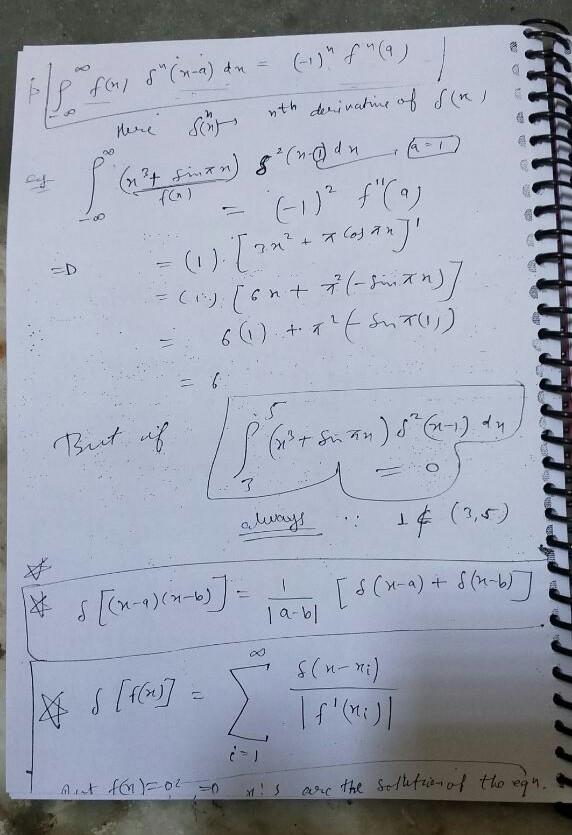 ∫_{-∞}^{∞} f(x) δⁿ(x-a) dx = (-1)ⁿ fⁿ(a)
Here δⁿ(x) → nth derivative of δ(x)
eg ∫_{-∞}^{∞} (x³ + sin πx) δ²(x-1) dx, a = 1
f(x)
= (-1)² f''(a)
=D = (1) · [3x² + π cos πx]'
= (1) · [6x + π²(-sin πx)]
= 6(1) + π²(-sin π(1))
= 6
But if ∫_{3}^{5} (x³ + sin πx) δ²(x-1) dx
= 0
always ∵ 1 ∉ (3,5)
☆
☆ δ[(x-a)(x-b)] = 1/|a-b| [δ(x-a) + δ(x-b)]
☆ δ[f(x)] = Σ_{i=1}^{∞} δ(x-xᵢ)/|f'(xᵢ)|
But f(x)=0 =0 xᵢ's are the solution of the eqn.